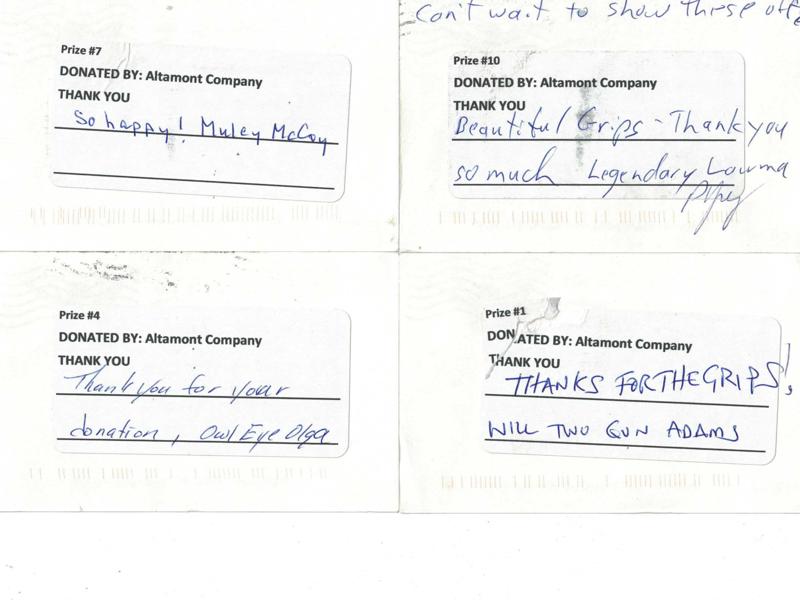 Prize #7
DONATED BY: Altamont Company
THANK YOU
So happy! Muley McCoy
Can't wait to show these off
Prize #10
DONATED BY: Altamont Company
THANK YOU
Beautiful Grips - Thank you
so much Legendary Lawma
Prize #4
DONATED BY: Altamont Company
THANK YOU
Thank you for your
donation, Owl Eye Olga
Prize #1
DONATED BY: Altamont Company
THANK YOU
THANKS FOR THE GRIPS!
WILL TWO GUN ADAMS